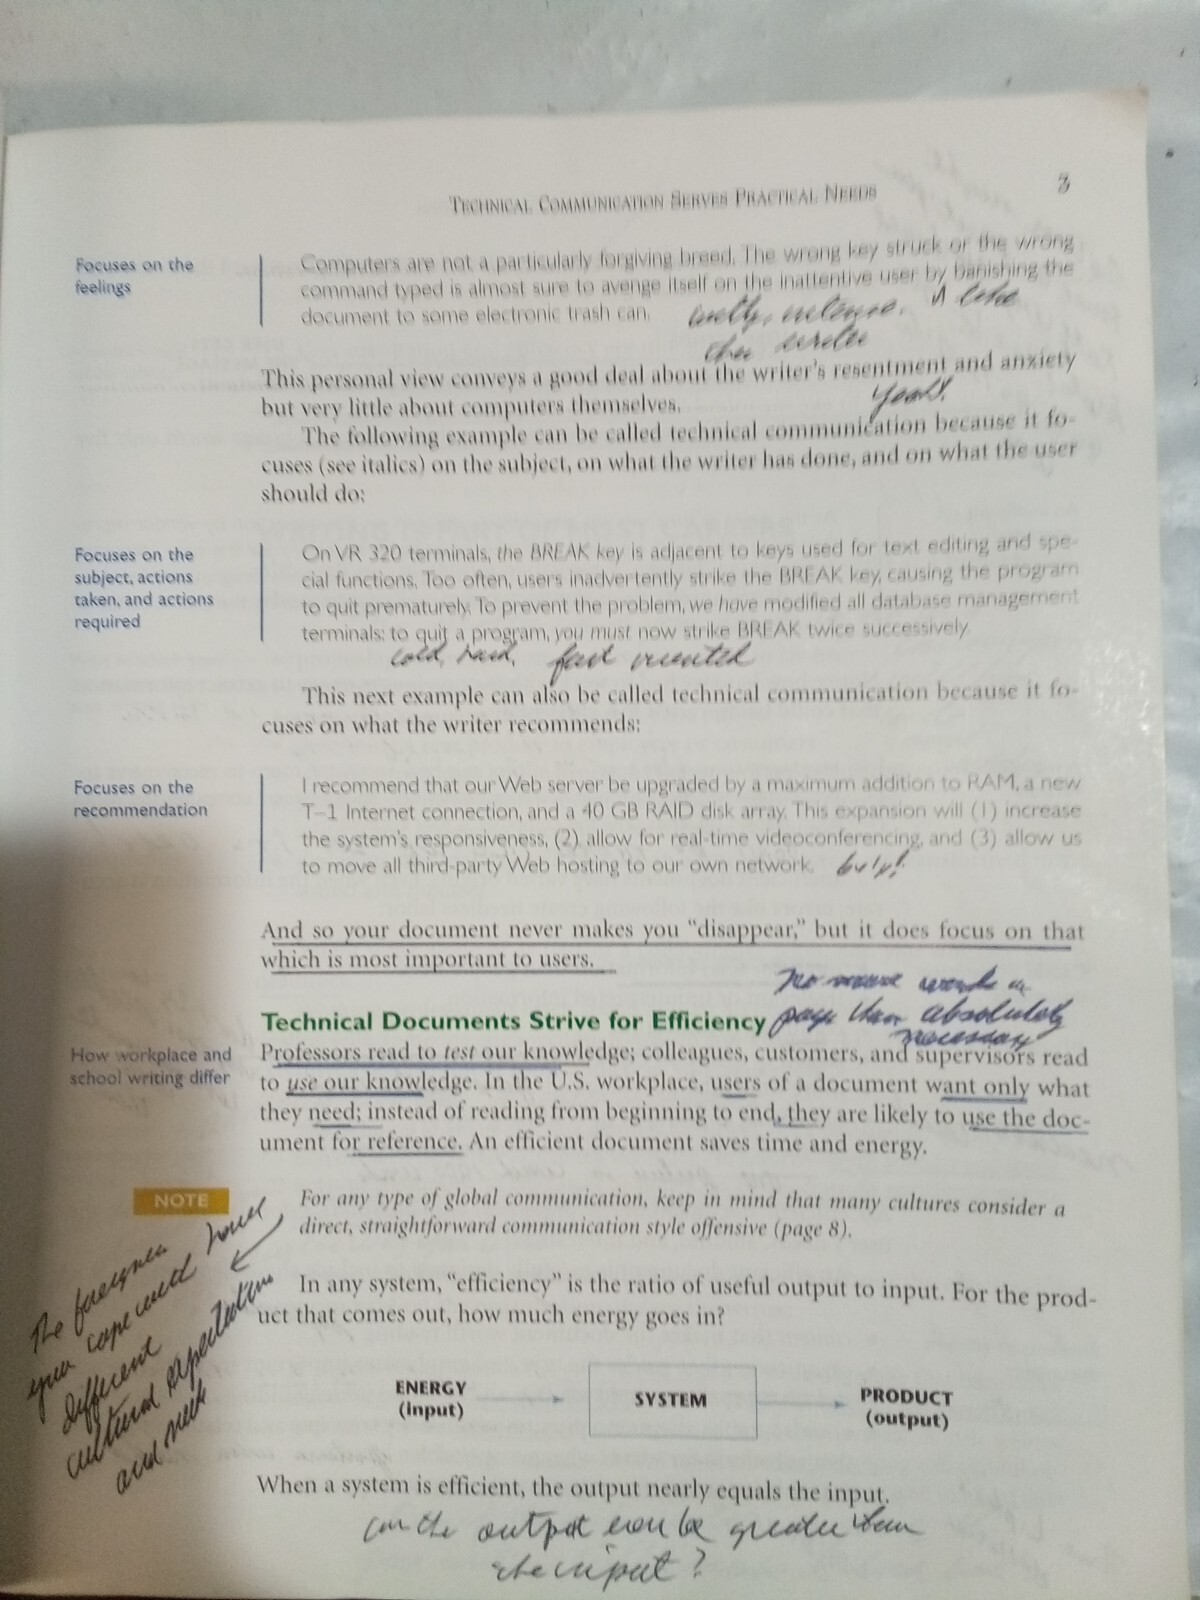 TECHNICAL COMMUNICATION SERVES PRACTICAL NEEDS
3
Focuses on the
feelings
Computers are not a particularly forgiving breed. The wrong key struck or the wrong
command typed is almost sure to avenge itself on the inattentive user by banishing the
document to some electronic trash can.
I like
the writer
This personal view conveys a good deal about the writer's resentment and anxiety
but very little about computers themselves.
Yeah!
The following example can be called technical communication because it fo-
cuses (see italics) on the subject, on what the writer has done, and on what the user
should do:
Focuses on the
subject, actions
taken, and actions
required
On VR 320 terminals, the BREAK key is adjacent to keys used for text editing and spe-
cial functions. Too often, users inadvertently strike the BREAK key, causing the program
to quit prematurely. To prevent the problem, we have modified all database management
terminals: to quit a program, you must now strike BREAK twice successively.
cold, hard, fact oriented
This next example can also be called technical communication because it fo-
cuses on what the writer recommends:
Focuses on the
recommendation
I recommend that our Web server be upgraded by a maximum addition to RAM, a new
T–1 Internet connection, and a 40 GB RAID disk array. This expansion will (1) increase
the system's responsiveness, (2) allow for real-time videoconferencing, and (3) allow us
to move all third-party Web hosting to our own network.
And so your document never makes you "disappear," but it does focus on that
which is most important to users.
no more words
page than absolutely
necessary
Technical Documents Strive for Efficiency
How workplace and
school writing differ
Professors read to test our knowledge; colleagues, customers, and supervisors read
to use our knowledge. In the U.S. workplace, users of a document want only what
they need; instead of reading from beginning to end, they are likely to use the doc-
ument for reference. An efficient document saves time and energy.
NOTE
For any type of global communication, keep in mind that many cultures consider a
direct, straightforward communication style offensive (page 8).
The foreigner
have
different
cultural expectations
and
In any system, "efficiency" is the ratio of useful output to input. For the prod-
uct that comes out, how much energy goes in?
ENERGY
(input)
SYSTEM
PRODUCT
(output)
When a system is efficient, the output nearly equals the input.
can the output ever be greater than
the input?